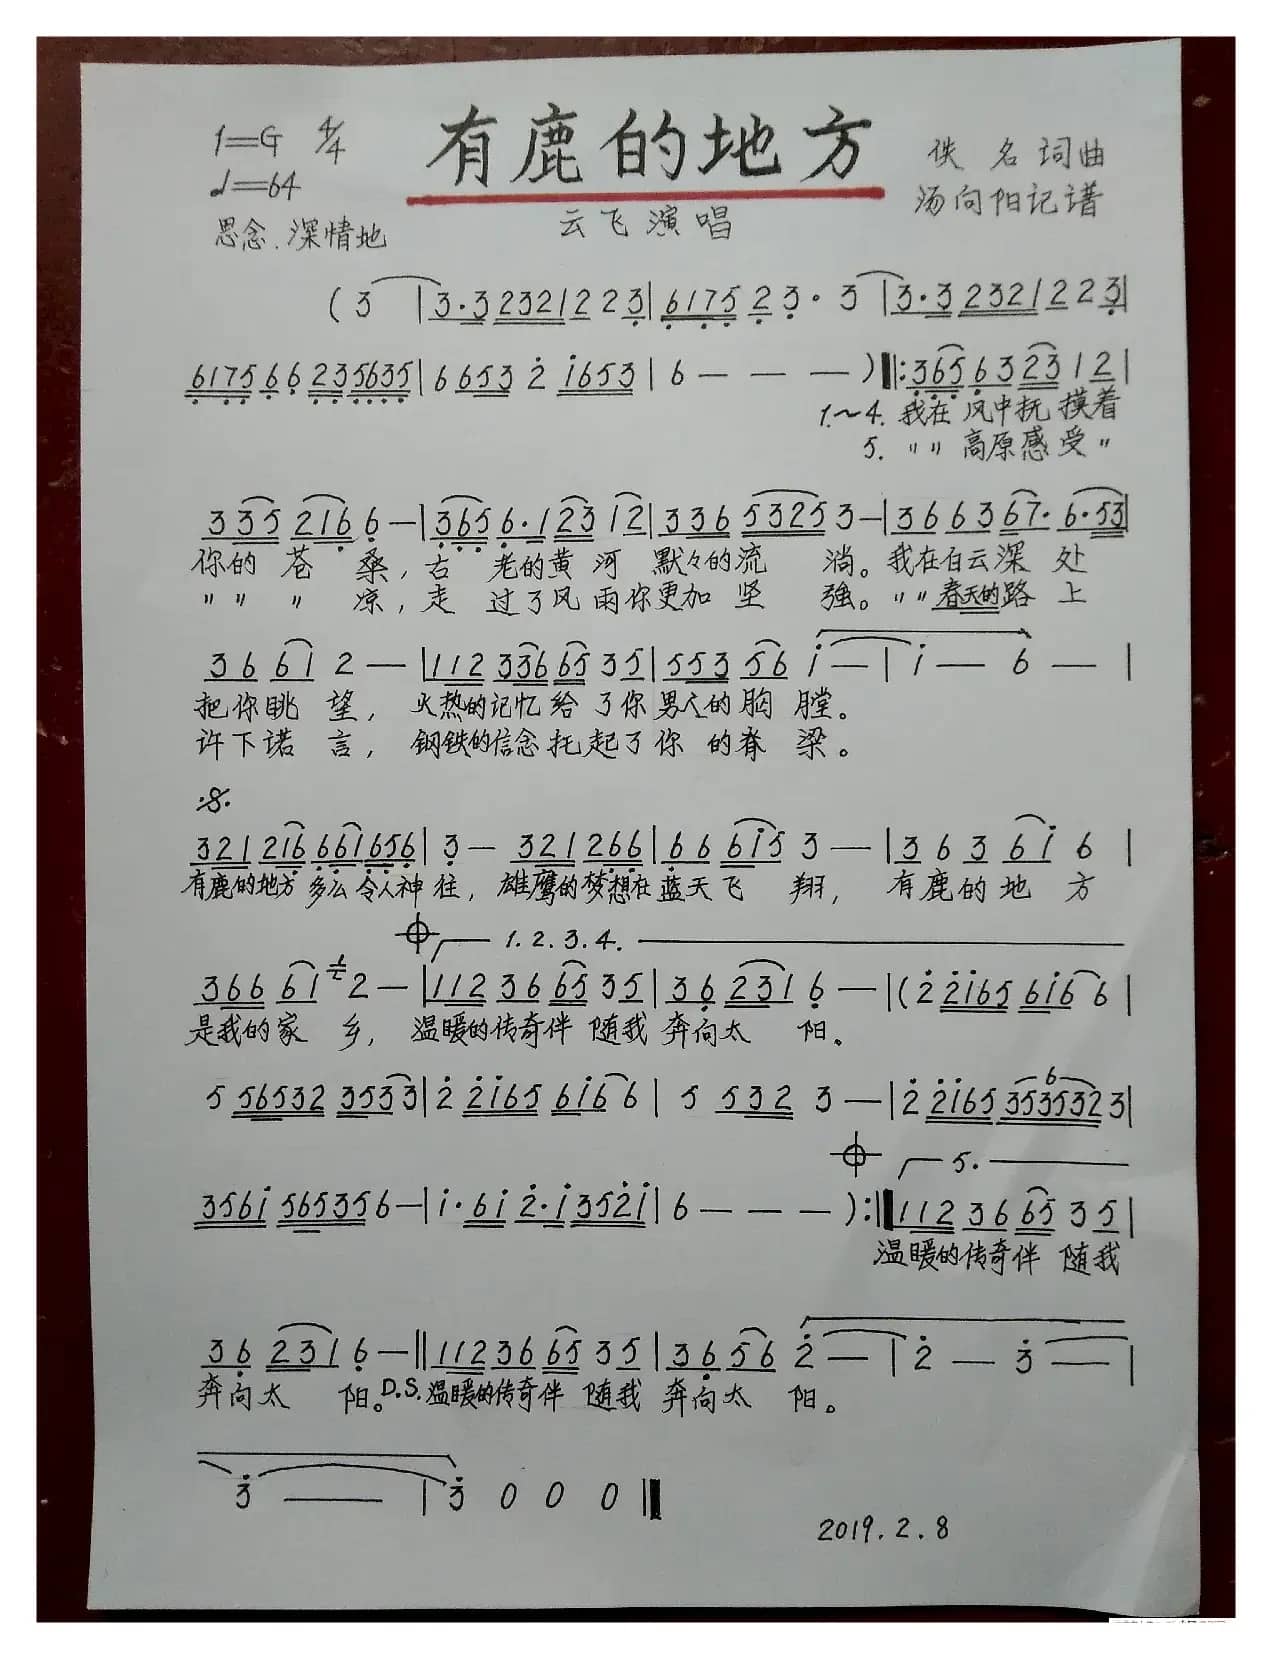 1=G 4/4 有鹿的地方 佚名词曲
♩=64 汤向阳记谱
思念、深情地 云飞演唱
(3 | 3·3 2321 2 2 3 | 6175 2 3· 3 | 3·3 2321 2 2 3 |
6175 6 6 235635 | 6 653 2 1653 | 6 — — — ) ‖: 365 63 23 12 |
1.~4. 我在 风中抚 摸着
5. 〃〃 高原感 受〃
335 216 6 — | 365 6·1 23 12 | 336 5325 3 — | 36 63 67· 6·53 |
你的 苍 桑, 古 老的黄 河 默々的流 淌。我在白云深 处
〃〃 〃 凉, 走 过了风 雨你更加 坚 强。〃〃春天的路 上
36 61 2 — | 112 336 65 35 | 553 56 1 — | 1 — 6 — |
把你眺 望, 火热的记忆给 了你男人的胸 膛。
许下诺 言, 钢铁的信念托起了你 的脊 梁。
321 216 661656 | 3 — 321 266 | 66 615 3 — | 36 3 61 6 |
有鹿的地方 多么令人神 往, 雄鹰的梦想在蓝天飞 翔, 有鹿的地 方
1.2.3.4.
366 61 2 — | 112 36 65 35 | 36 231 6 — | (2 2165 616 6 |
是我的家 乡, 温暖的传奇伴 随我 奔向太 阳。
5 56532 3533 | 2 2165 616 6 | 5 532 3 — | 2 2165 3535323 |
6
5.
3561 565356 — | 1·61 2·1 3521 | 6 — — — ) :‖ 112 36 65 35 |
温暖的传奇伴 随我
36 231 6 — ‖ 112 36 65 35 | 36 56 2 — | 2 — 3 — |
奔向太 阳。D.S. 温暖的传奇伴 随我 奔向太 阳。
3 — | 3 0 0 0 ‖
2019.2.8